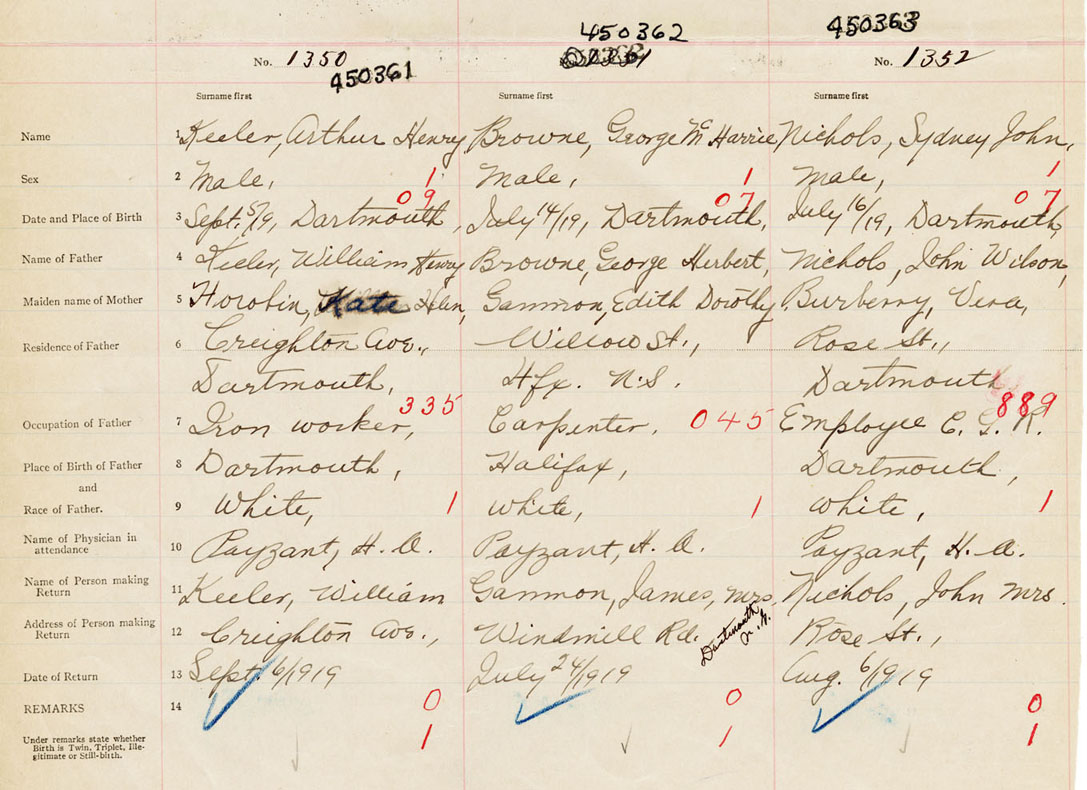 450362
450363
No. 1350
No. 1352
450361
Surname first Surname first Surname first
Name 1 Keeler, Arthur Henry Browne, George Mc Harrie Nichols, Sydney John,
Sex 2 Male, 1 Male, 1 Male, 1
09 07 07
Date and Place of Birth 3 Sept. 5/19, Dartmouth, July 14/19, Dartmouth, July 16/19, Dartmouth,
Name of Father 4 Keeler, William Henry Browne, George Herbert, Nichols, John Wilson,
Maiden name of Mother 5 Horobin, Kate Helen, Gammon, Edith Dorothy. Burberry, Vera,
Residence of Father 6 Creighton Ave., Willow St., Rose St.,
Dartmouth, Hfx. N.S. Dartmouth
335 889
Occupation of Father 7 Iron worker, Carpenter, 045 Employee E. G. R.
Place of Birth of Father 8 Dartmouth, Halifax, Dartmouth,
and
Race of Father. 9 White, 1 White, 1 White, 1
Name of Physician in
attendance 10 Payzant, H. A. Payzant, H. A. Payzant, H. A.
Name of Person making
Return 11 Keeler, William Gammon, James, Mrs. Nichols, John Mrs.
Address of Person making
Return 12 Creighton Ave., Windmill Rd. Dartmouth Rose St.,
Date of Return 13 Sept. 6/1919 July 24/1919 Aug. 6/1919
REMARKS 14 0 0 0
Under remarks state whether
Birth is Twin, Triplet, Ille-
gitimate or Still-birth. 1 1 1